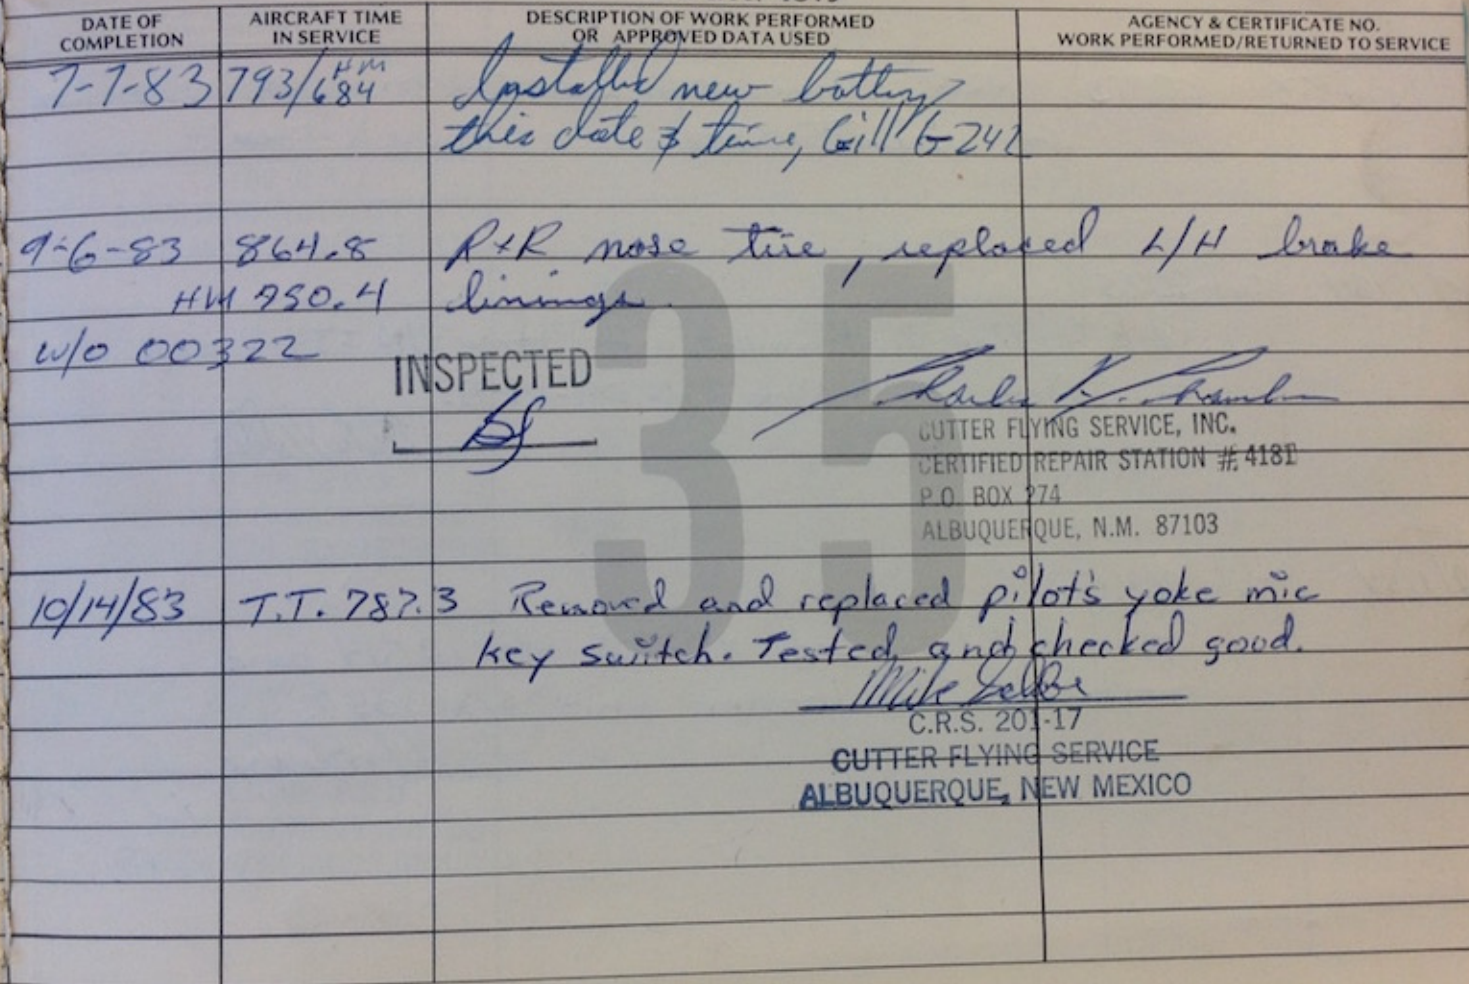 DATE OF COMPLETION
AIRCRAFT TIME IN SERVICE
DESCRIPTION OF WORK PERFORMED OR APPROVED DATA USED
AGENCY & CERTIFICATE NO. WORK PERFORMED/RETURNED TO SERVICE
7-7-83 793/684 HM Installed new battery
this date & time, Gill G-242
9-6-83 864.8 R+R nose tire, replaced L/H brake
HM 750.4 linings.
W/O 00322
35
INSPECTED
Charles
CUTTER FLYING SERVICE, INC.
CERTIFIED REPAIR STATION # 4181
P.O. BOX 274
ALBUQUERQUE, N.M. 87103
10/14/83 T.T. 787.3 Removed and replaced pilot's yoke mic
key switch. Tested and checked good.
Mike
C.R.S. 201-17
CUTTER FLYING SERVICE
ALBUQUERQUE, NEW MEXICO